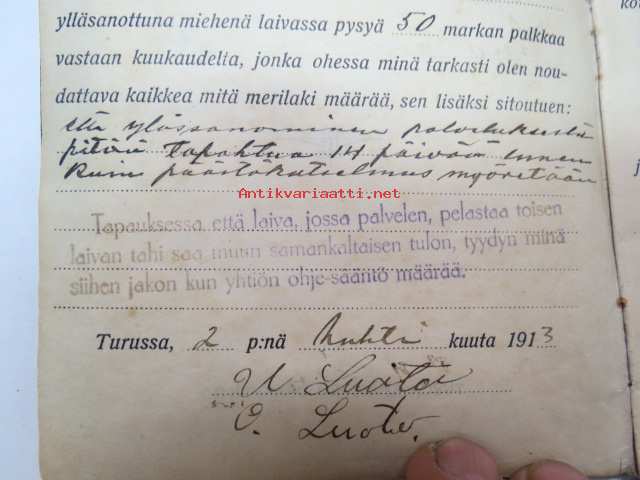 ylläsanottuna miehenä laivassa pysyä 50 markan palkkaa
vastaan kuukaudelta, jonka ohessa minä tarkasti olen nou-
dattava kaikkea mitä merilaki määrää, sen lisäksi sitoutuen:
että ylössanominen palveluksesta
pitää tapahtua 14 päivää ennen
kuin päästökatselmus myönetään
Antikvariaatti.net
Tapauksessa että laiva, jossa palvelen, pelastaa toisen
laivan tahi saa muun samankaltaisen tulon, tyydyn minä
siihen jakon kun yhtiön ohje-sääntö määrää.
Turussa, 2 p:nä huhti kuuta 1913
U. Luoto
E. Luoto.